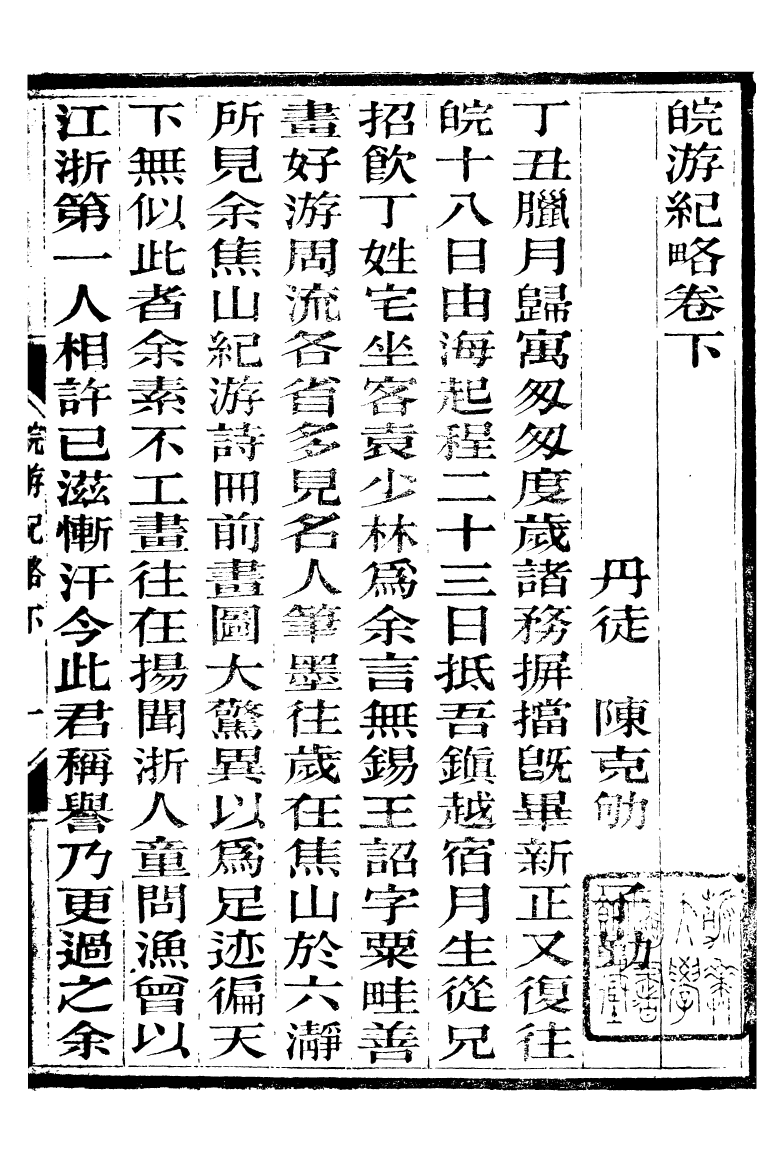 皖游紀略卷下
丹徒　陳克劬　子勤
丁丑臘月歸寓匆匆度歲諸務摒擋旣畢新正又復往
皖十八日由海起程二十三日抵吾鎭越宿月生從兄
招飮丁姓宅坐客袁少林爲余言無錫王詔字粟畦善
畫好游周流各省多見名人筆墨往歲在焦山於六瀞
所見余焦山紀游詩冊前畫圖大驚異以爲足迹徧天
下無似此者余素不工畫往在揚聞浙人童問漁曾以
江浙第一人相許已滋慚汗今此君稱譽乃更過之余
皖游紀略下
一